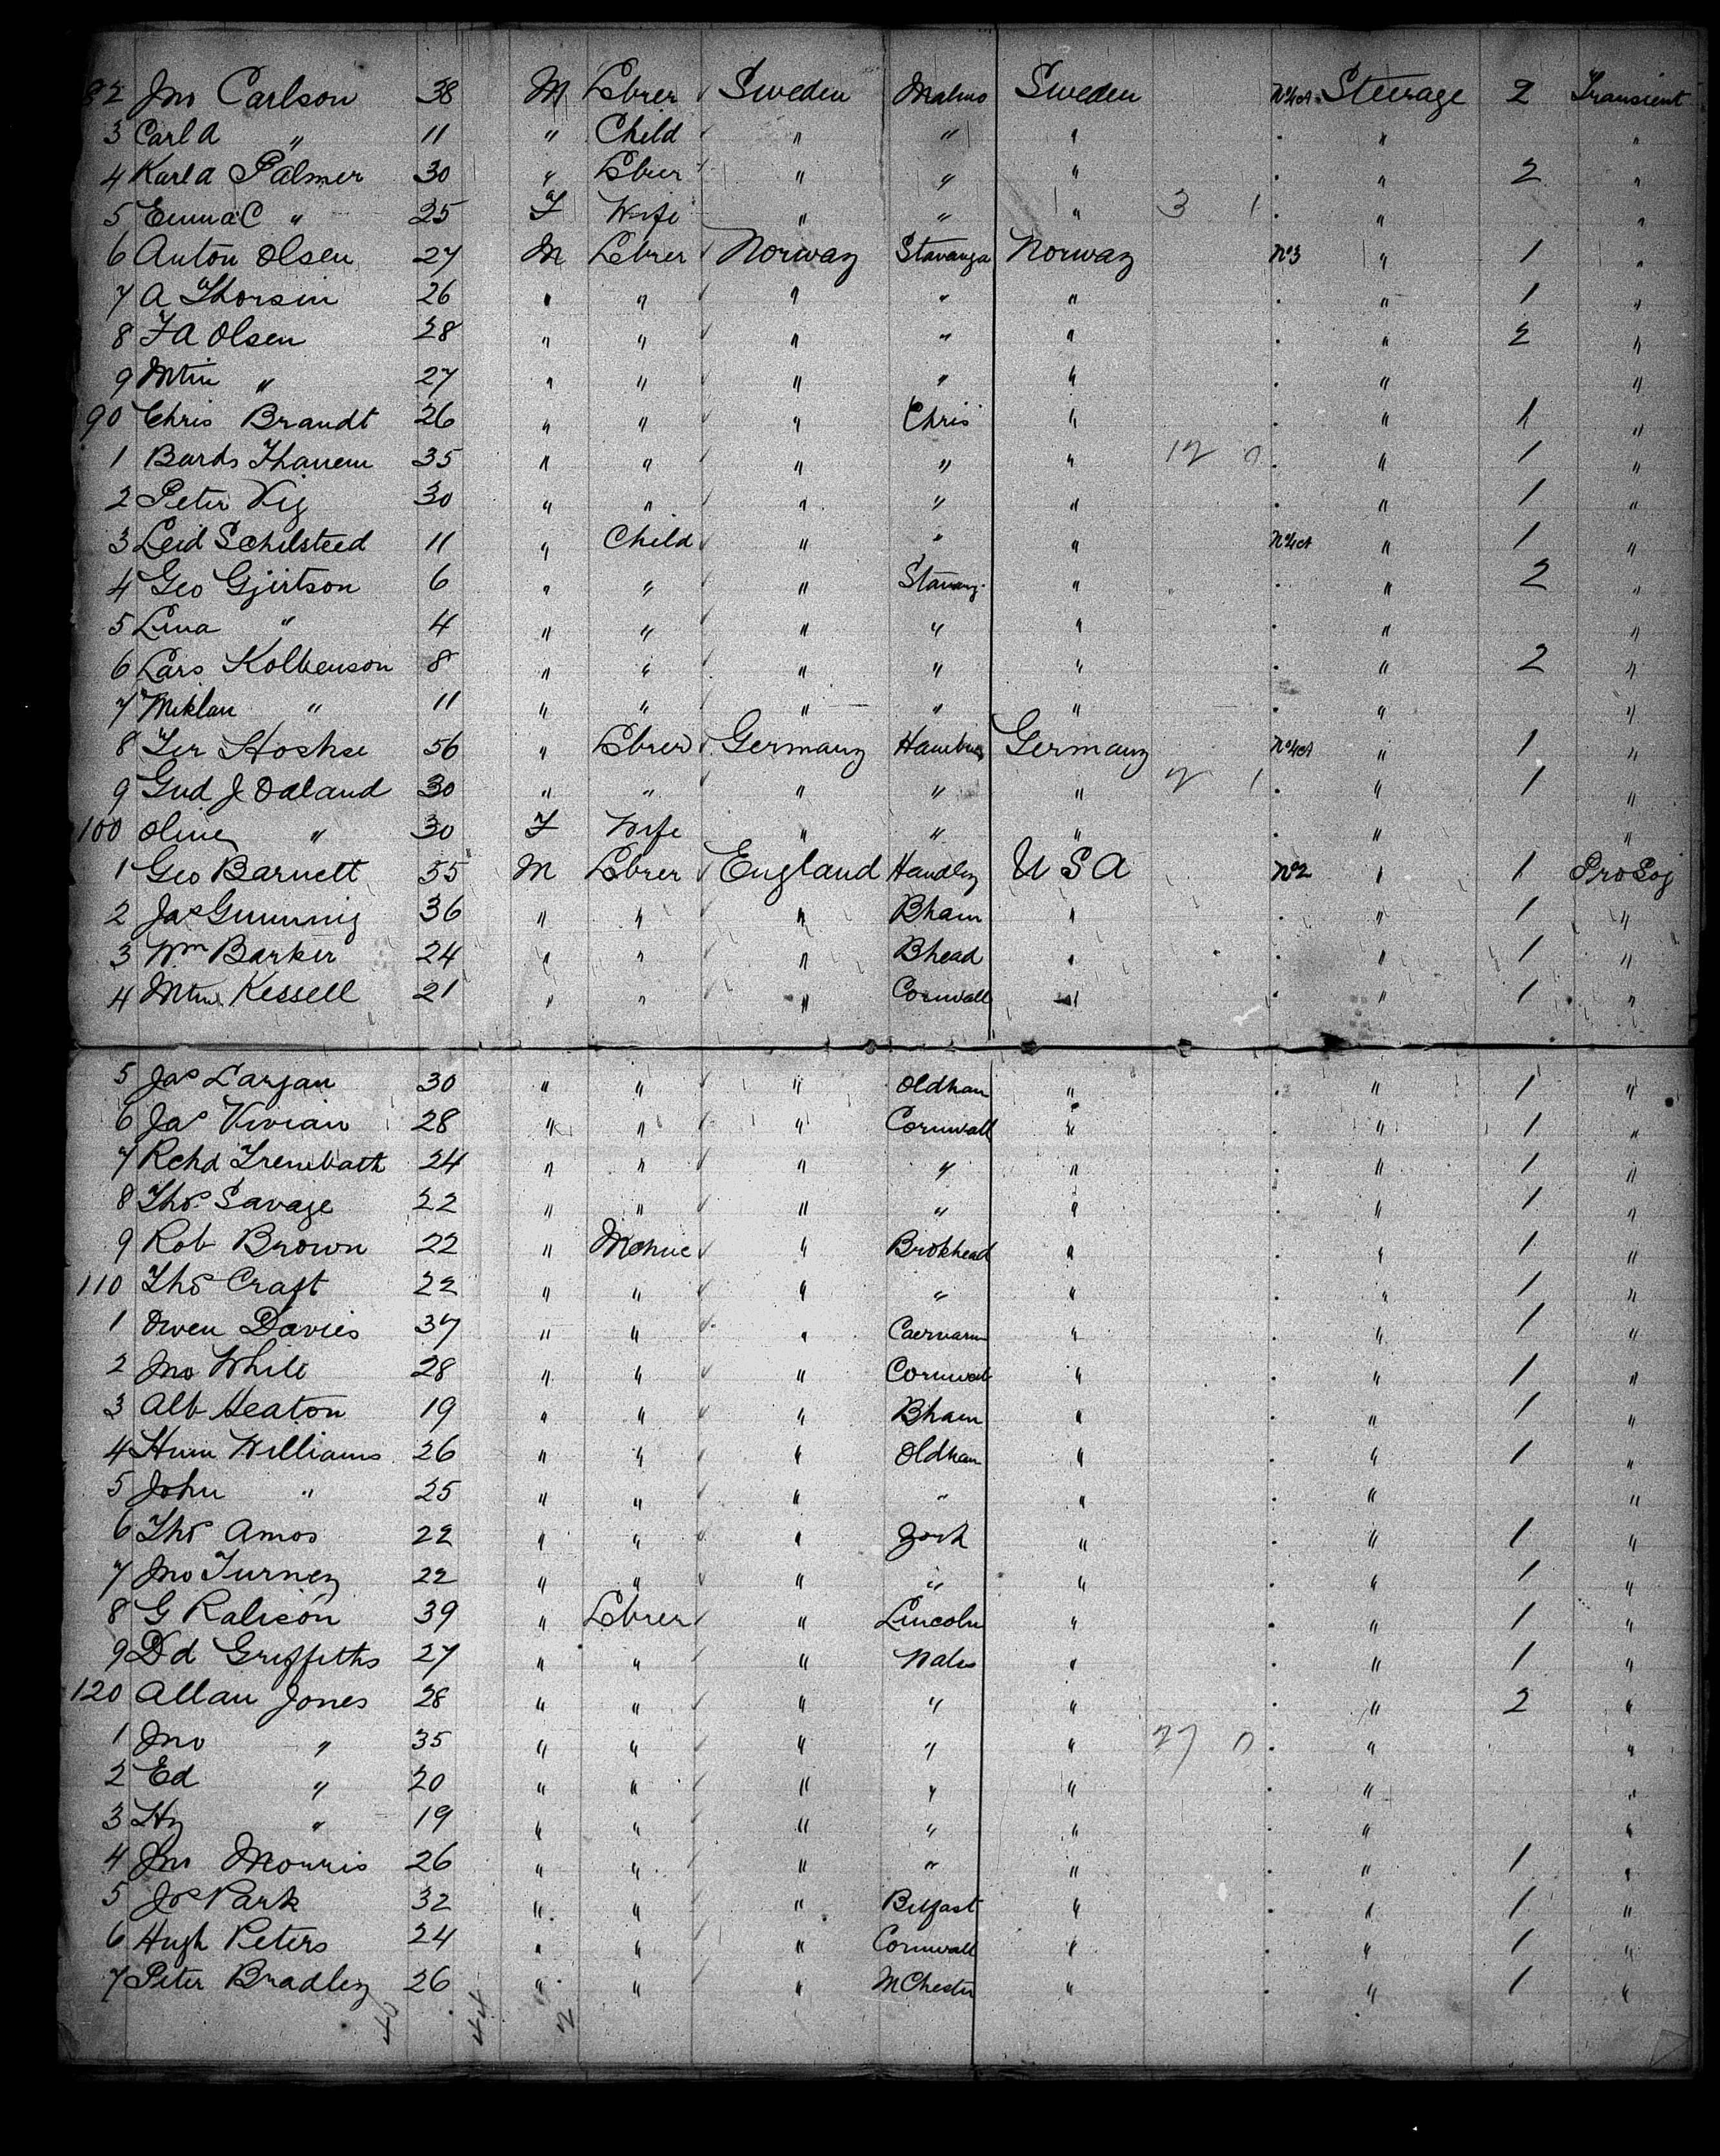 82 Jno Carlson 38 M Lbrer Sweden Malmo Sweden No4ct Steerage 2 Transient
3 Carl A " 11 " Child " " " . " "
4 Karl A Palmer 30 " Lbrer " " " . " 2 "
5 Emma C " 25 F Wife " " " 3 1 . " "
6 Anton Olsen 27 M Lbrer Norway Stavanga Norway No3 " 1 "
7 A Thorsin 26 " " " " " . " 1 "
8 F A Olsen 28 " " " " " . " 2 "
9 Mtin " 27 " " " " " . " "
90 Chris Brandt 26 " " " Chris " . " 1 "
1 Bards Thanem 35 " " " " " 12 0 . " 1 "
2 Peter Vig 30 " " " " " . " 1 "
3 Leid Schilsteed 11 " Child " " " No4ct " 1 "
4 Geo Gjertson 6 " " " Stavang " . " 2 "
5 Lina " 4 " " " " " . " "
6 Lars Kolbenson 8 " " " " " . " 2 "
7 Miklau " 11 " " " " " . " "
8 56 " Lbrer Germany Hamburg Germany No4ct " 1 "
9 Gud J Daland 30 " " " " " 2 1 . " 1 "
100 Oline " 30 F Wife " " " . " "
1 Geo Barnett 35 M Lbrer England Handley U S A No2 " 1 Pro Soj
2 Jas Gunning 36 " " " Bham " . " 1 "
3 Wm Barker 24 " " " Bhead " . " 1 "
4 Mtin Kessell 21 " " " Cornwall " . " 1 "
5 Jas Largan 30 " " " Oldham " . " 1 "
6 Jas Vivian 28 " " " Cornwall " . " 1 "
7 Rchd Trembath 24 " " " " " . " 1 "
8 Thos Savage 22 " " " " " . " 1 "
9 Rob Brown 22 " Mchnc " Brokhead " . " 1 "
110 Thos Craft 22 " " " " " . " 1 "
1 Owen Davies 37 " " " Caernarvn " . " 1 "
2 Jno White 28 " " " Cornwall " . " 1 "
3 Alb Heaton 19 " " " Bham " . " 1 "
4 Williams 26 " " " Oldham " . " 1 "
5 John " 25 " " " " " . " "
6 Thos Amos 22 " " " York " . " 1 "
7 Jno Turney 22 " " " " " . " 1 "
8 G Ralison 39 " Lbrer " Lincoln " . " 1 "
9 Dd Griffiths 27 " " " Wales " . " 1 "
120 Allan Jones 28 " " " " " . " 2 "
1 Jno " 35 " " " " " 27 0 . " "
2 Ed " 20 " " " " " . " "
3 Hy " 19 " " " " " . " "
4 Jno Morris 26 " " " " " . " 1 "
5 Jos Park 32 " " " Belfast " . " 1 "
6 Hugh Peters 24 " " " Cornwall " . " 1 "
7 Peter Bradley 26 " " " MChester " . " 1 "
46 44 2